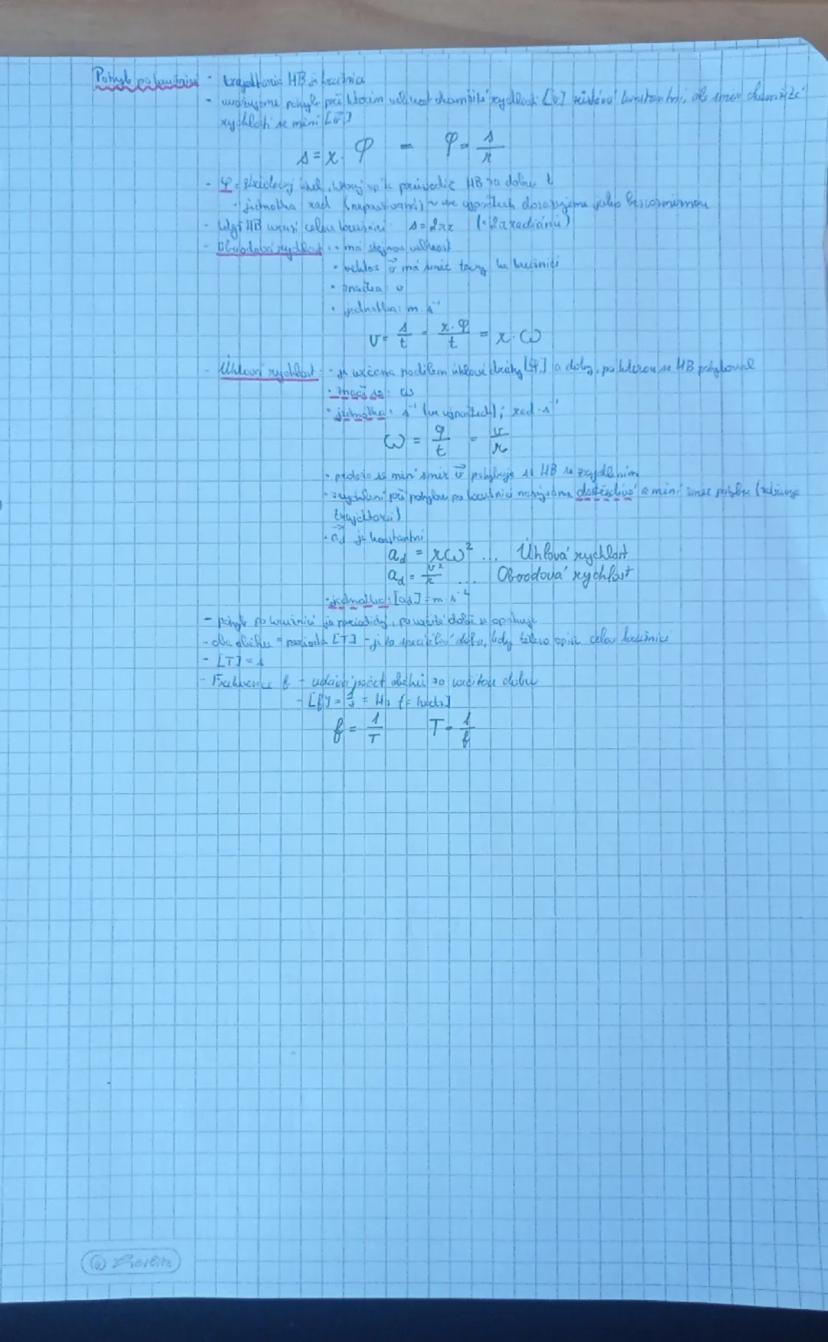 Pohyb po kružnici - trajektorie HB je kružnice
- uvažujeme pohyb při kterém velikost okamžité rychlosti [v] zůstává konstantní, ale směr okamžité
rychlosti se mění [v⃗]
s = r · φ – φ = s/r
- φ = středový úhel, který opíše průvodič HB za dobu t
· jednotka rad ve výpočtech dosazujeme jako bezrozměrnou
- když HB urazí celou kružnici s = 2πr (= 2π radiánů)
- Obvodová rychlost: - má stejnou velikost
· vektor v⃗ má směr tečny ke kružnici
· značka: v
· jednotka: m s⁻¹
v = s/t = r·φ/t = r · ω
- Úhlová rychlost: - je určena podílem úhlové dráhy [φ] a doby, po kterou se HB pohyboval
· značí se: ω
· jednotka: s⁻¹ (ve výpočtech); rad · s⁻¹
ω = φ/t = v/r
· protože se mění směr v⃗ pohybuje se HB se zrychlením
· zrychlení při pohybu po kružnici nazýváme dostředivé a mění směr pohybu
trajektorii)
· a⃗d je konstantní
ad = rω² ... Úhlová rychlost
ad = v²/r ... Obvodová rychlost
· jednotka: [ad] = m s⁻²
- pohyb po kružnici je periodický, po určité době se opakuje
- doba oběhu = perioda [T] - je to speciální doba, kdy těleso opíše celou kružnici
- [T] = s
- Frekvence f - udává počet oběhů za určitou dobu
- [f] = 1/s = Hz (= hertz)
f = 1/T T = 1/f